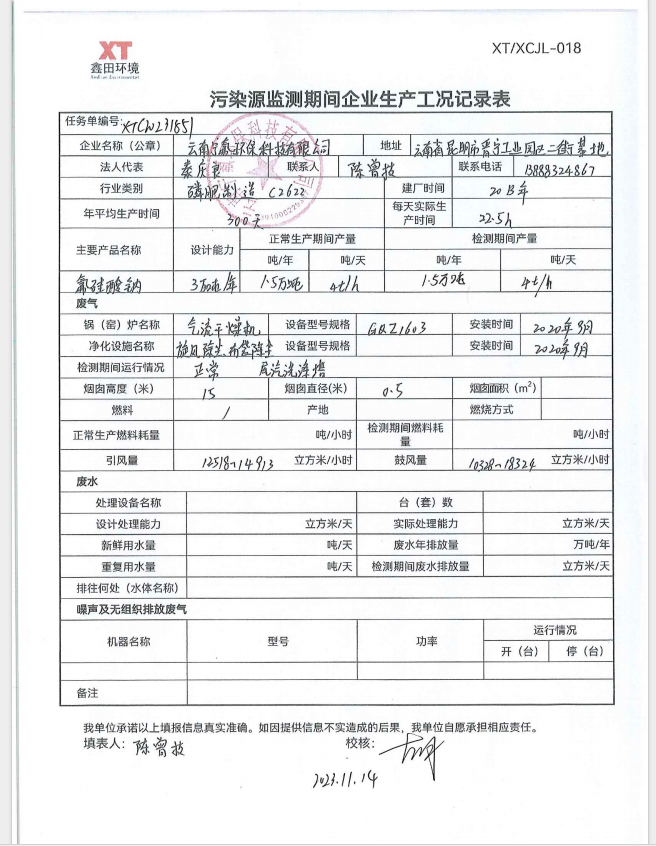 XT
鑫田环境
XT/XCJL-018
污染源监测期间企业生产工况记录表
任务单编号: XTCW231851
企业名称（公章） 云南 环保科技有限公司 地址 云南省昆明市晋宁工业园区二街基地
法人代表 联系人 陈曾技 联系电话 13888324867
行业类别 磷肥制造 C2622 建厂时间 2013年
年平均生产时间 300天 每天实际生产时间 22.5h
主要产品名称 设计能力 正常生产期间产量 检测期间产量
吨/年 吨/天 吨/年 吨/天
氟硅酸钠 3万吨/年 1.5万吨 4t/h 1.5万吨 4t/h
废气
锅（窑）炉名称 气流干燥机 设备型号规格 GQZ1603 安装时间 2020年9月
净化设施名称 旋风除尘、布袋除尘 设备型号规格 安装时间 2020年9月
检测期间运行情况 正常 尾汽洗涤塔
烟囱高度（米） 15 烟囱直径(米） 0.5 烟囱面积（m²）
燃料 / 产地 燃烧方式
正常生产燃料耗量 吨/小时 检测期间燃料耗量 吨/小时
引风量 12518~14913 立方米/小时 鼓风量 10328~18324 立方米/小时
废水
处理设备名称 台（套）数
设计处理能力 立方米/天 实际处理能力 立方米/天
新鲜用水量 吨/天 废水年排放量 万吨/年
重复用水量 吨/天 检测期间废水排放量 立方米/天
排往何处（水体名称）
噪声及无组织排放废气
机器名称 型号 功率 运行情况
开（台） 停（台）
备注
我单位承诺以上填报信息真实准确。如因提供信息不实造成的后果，我单位自愿承担相应责任。
填表人: 陈曾技 校核:
2023.11.14